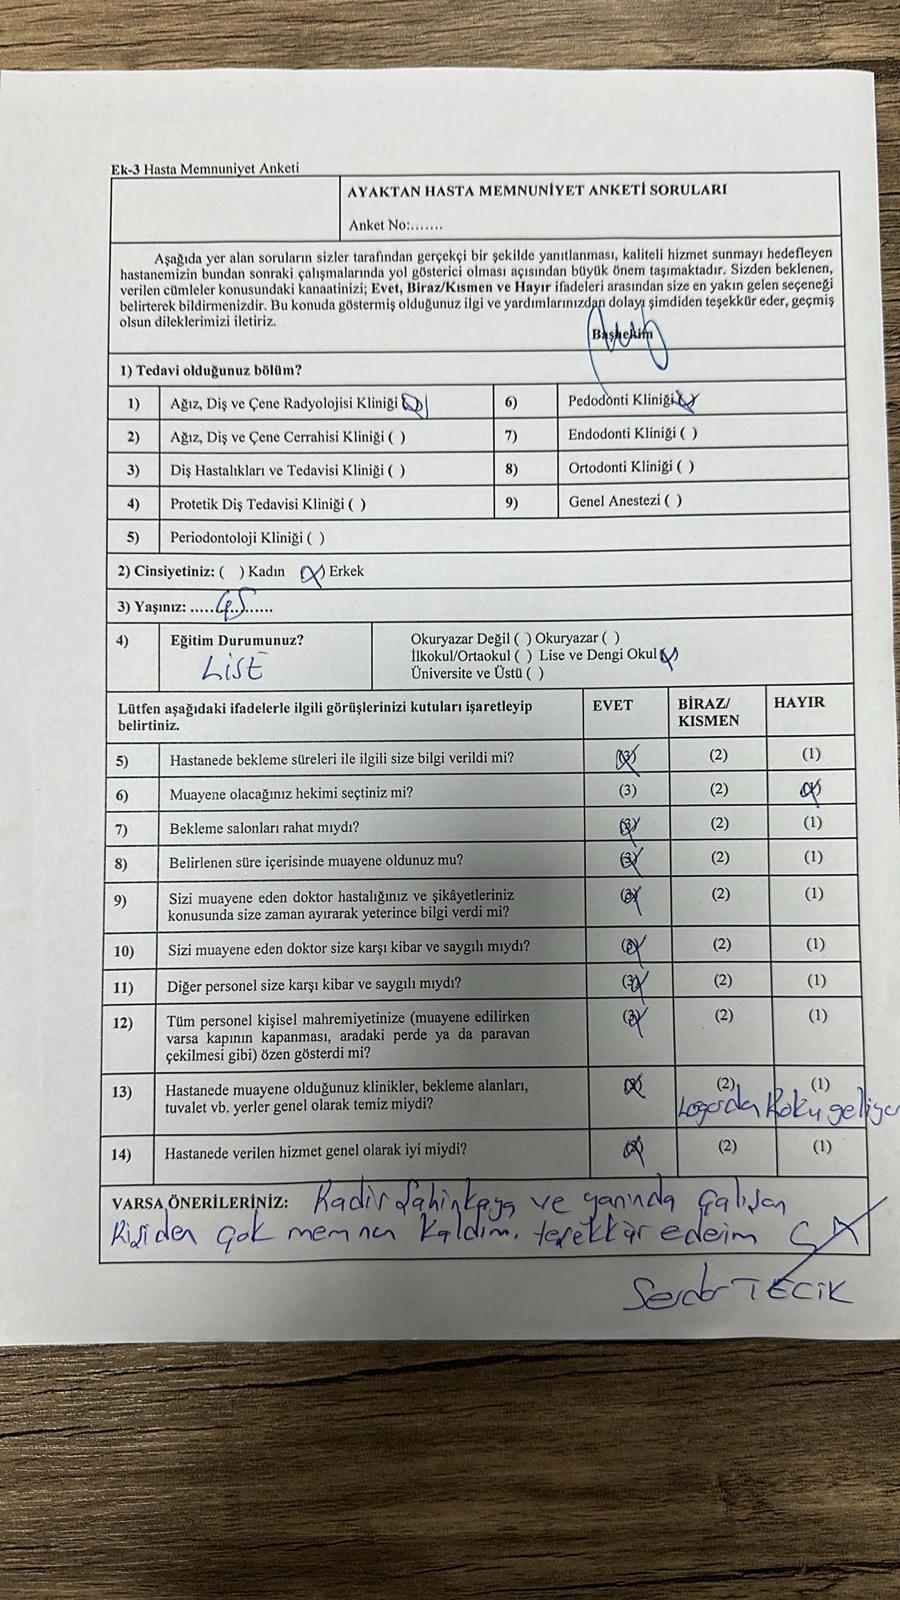 Ek-3 Hasta Memnuniyet Anketi
AYAKTAN HASTA MEMNUNİYET ANKETİ SORULARI
Anket No:.......
Aşağıda yer alan soruların sizler tarafından gerçekçi bir şekilde yanıtlanması, kaliteli hizmet sunmayı hedefleyen
hastanemizin bundan sonraki çalışmalarında yol gösterici olması açısından büyük önem taşımaktadır. Sizden beklenen,
verilen cümleler konusundaki kanaatinizi; Evet, Biraz/Kısmen ve Hayır ifadeleri arasından size en yakın gelen seçeneği
belirterek bildirmenizdir. Bu konuda göstermiş olduğunuz ilgi ve yardımlarınızdan dolayı şimdiden teşekkür eder, geçmiş
olsun dileklerimizi iletiriz.
Başhekim
1) Tedavi olduğunuz bölüm?
1) Ağız, Diş ve Çene Radyolojisi Kliniği (X) 6) Pedodonti Kliniği (X)
2) Ağız, Diş ve Çene Cerrahisi Kliniği ( ) 7) Endodonti Kliniği ( )
3) Diş Hastalıkları ve Tedavisi Kliniği ( ) 8) Ortodonti Kliniği ( )
4) Protetik Diş Tedavisi Kliniği ( ) 9) Genel Anestezi ( )
5) Periodontoloji Kliniği ( )
2) Cinsiyetiniz: ( ) Kadın (X) Erkek
3) Yaşınız: .....45......
4) Eğitim Durumunuz? Okuryazar Değil ( ) Okuryazar ( )
LİSE İlkokul/Ortaokul ( ) Lise ve Dengi Okul (X)
Üniversite ve Üstü ( )
Lütfen aşağıdaki ifadelerle ilgili görüşlerinizi kutuları işaretleyip EVET BİRAZ/ HAYIR
belirtiniz. KISMEN
5) Hastanede bekleme süreleri ile ilgili size bilgi verildi mi? (3) (2) (1)
6) Muayene olacağınız hekimi seçtiniz mi? (3) (2) (1)
7) Bekleme salonları rahat mıydı? (3) (2) (1)
8) Belirlenen süre içerisinde muayene oldunuz mu? (3) (2) (1)
9) Sizi muayene eden doktor hastalığınız ve şikâyetleriniz (3) (2) (1)
konusunda size zaman ayırarak yeterince bilgi verdi mi?
10) Sizi muayene eden doktor size karşı kibar ve saygılı mıydı? (3) (2) (1)
11) Diğer personel size karşı kibar ve saygılı mıydı? (3) (2) (1)
12) Tüm personel kişisel mahremiyetinize (muayene edilirken (3) (2) (1)
varsa kapının kapanması, aradaki perde ya da paravan
çekilmesi gibi) özen gösterdi mi?
13) Hastanede muayene olduğunuz klinikler, bekleme alanları, (3) (2) (1)
tuvalet vb. yerler genel olarak temiz miydi? Logarda Koku geliyor
14) Hastanede verilen hizmet genel olarak iyi miydi? (3) (2) (1)
VARSA ÖNERİLERİNİZ: Kadir Şahinkaya ve yanında çalışan
Kişiden çok memnun kaldım. teşekkür edeim
Serdar TECİK